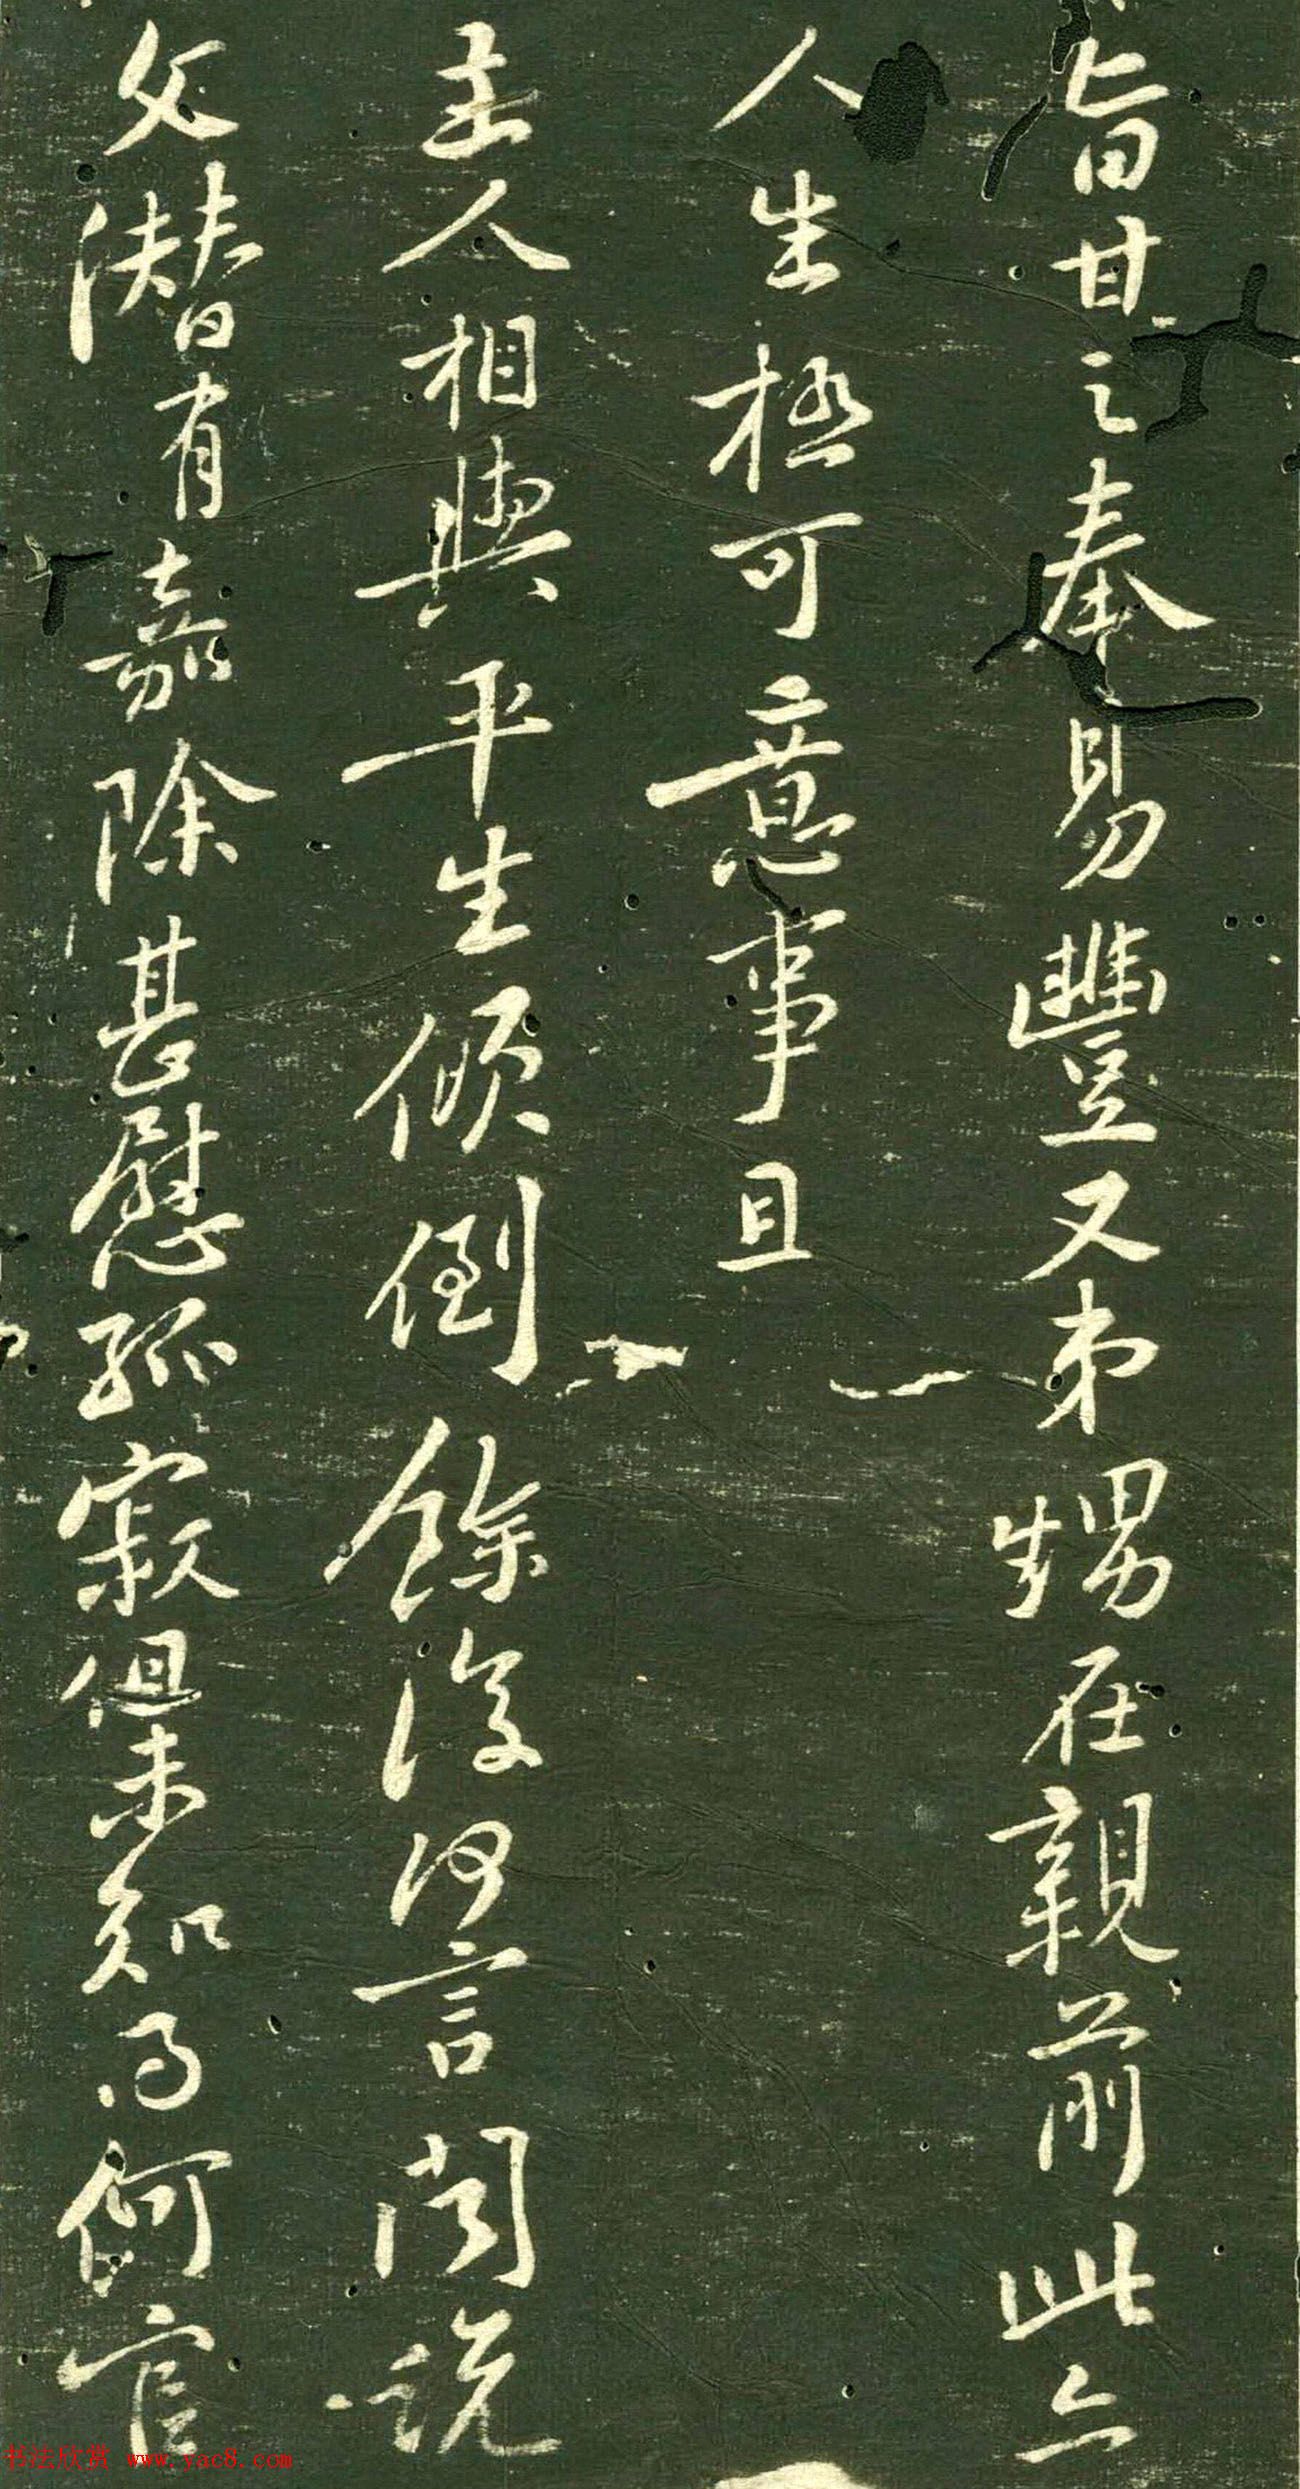 旨甘之奉易豐又弟甥在親前此亦
人生極可意事且
主人相與平生傾倒餘復何言聞說
父潛有嘉除甚慰孤寂但未知得何官
书法欣赏 www.yac8.com